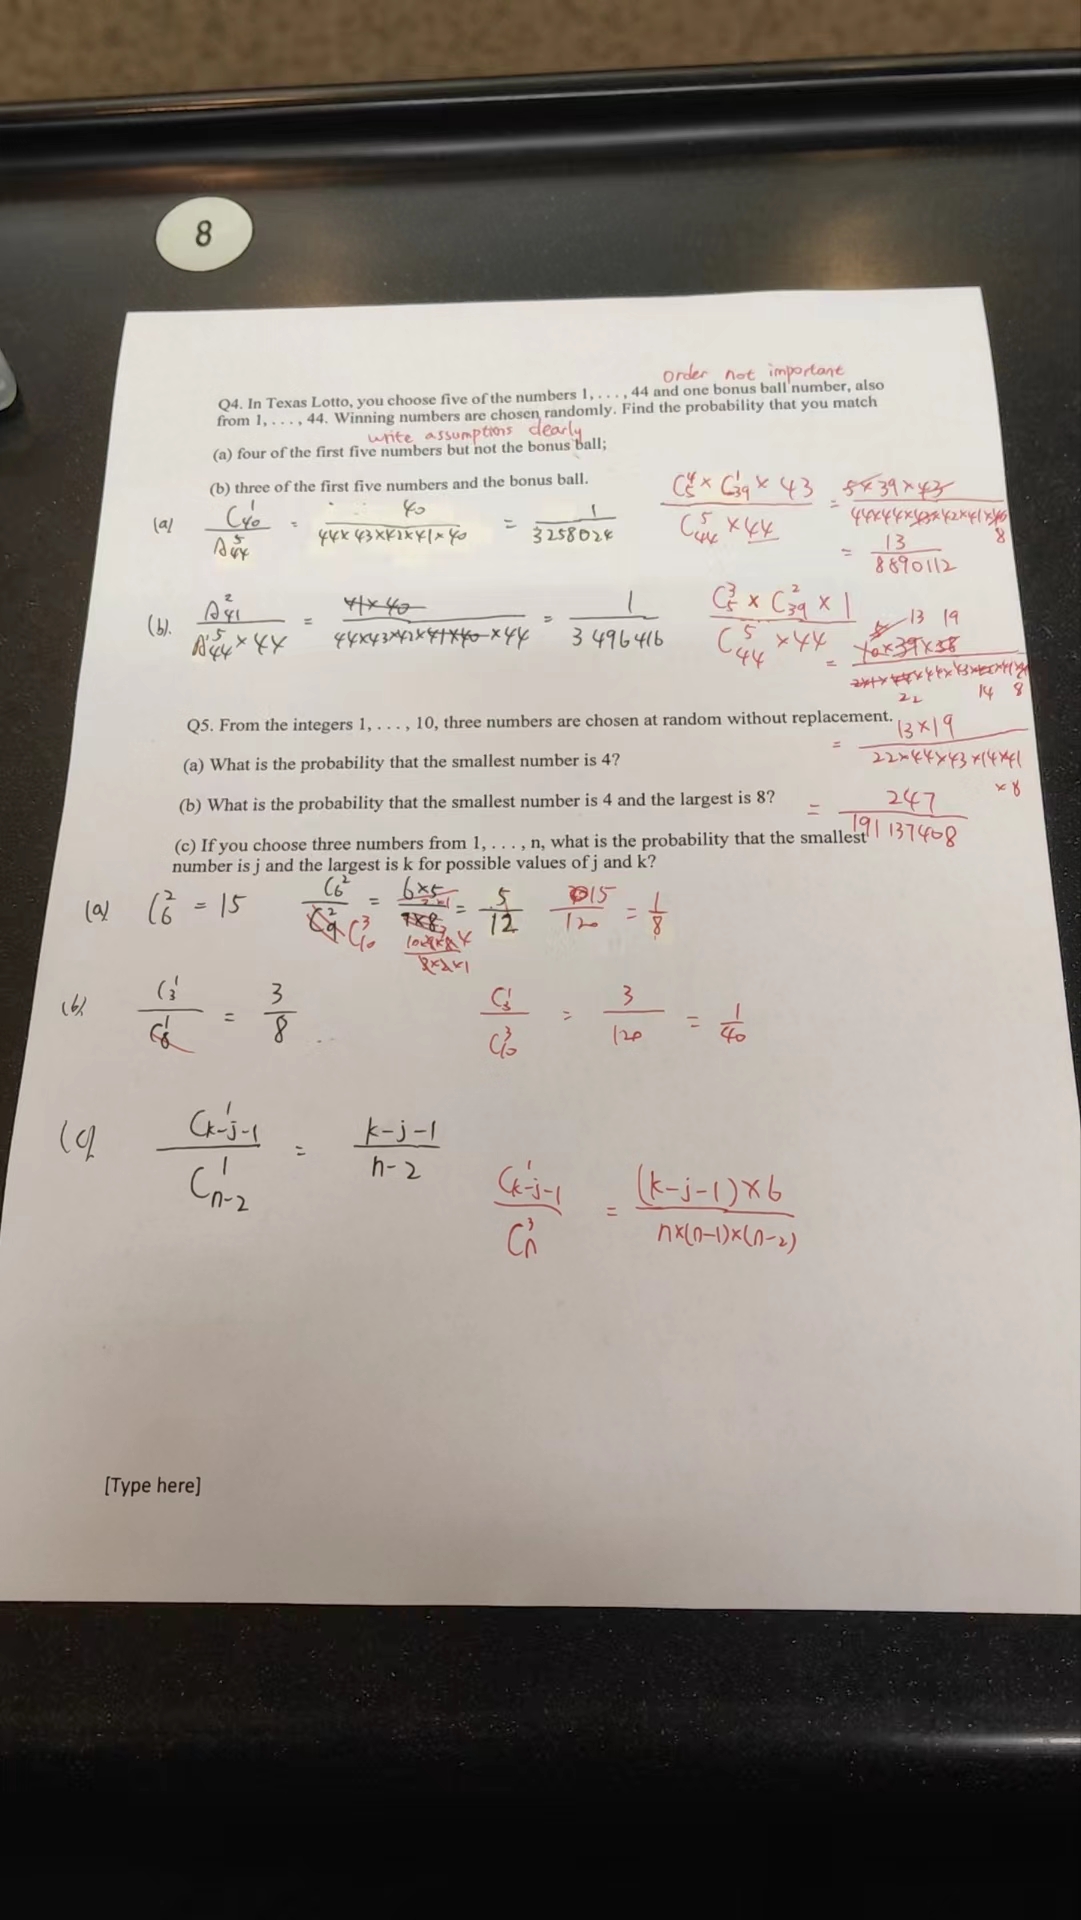 8
order not important
Q4. In Texas Lotto, you choose five of the numbers 1, . . . , 44 and one bonus ball number, also
from 1, . . . , 44. Winning numbers are chosen randomly. Find the probability that you match
write assumptions clearly
(a) four of the first five numbers but not the bonus ball;
(b) three of the first five numbers and the bonus ball.
(a) C^1_40 / A^5_44 = 40 / 44×43×42×41×40 = 1 / 3258024
C^4_5 × C^1_39 × 43 / C^5_44 × 44 = 5×39×43 / 44×44×43×42×41×40 8
= 13 / 8890112
(b). A^2_41 / A^5_44 × 44 = 41×40 / 44×43×42×41×40×44 = 1 / 3496416
C^3_5 × C^2_39 × 1 / C^5_44 × 44
13 19
= 10×39×38
22 14 8
= 13×19 / 22×44×43×14×41 ×8
= 247 / 191137408
Q5. From the integers 1, . . . , 10, three numbers are chosen at random without replacement.
(a) What is the probability that the smallest number is 4?
(b) What is the probability that the smallest number is 4 and the largest is 8?
(c) If you choose three numbers from 1, . . . , n, what is the probability that the smallest
number is j and the largest is k for possible values of j and k?
(a) C^2_6 = 15 C^2_6 / C^2_9 C^3_10 = 6×5 / 9×8 = 5 / 12 15 / 120 = 1 / 8
(b) C^1_3 / C^1_8 = 3 / 8 C^1_3 / C^3_10 = 3 / 120 = 1 / 40
(c) C^1_k-j-1 / C^1_n-2 = k-j-1 / n-2
C^1_k-j-1 / C^3_n = (k-j-1)×6 / n×(n-1)×(n-2)
[Type here]